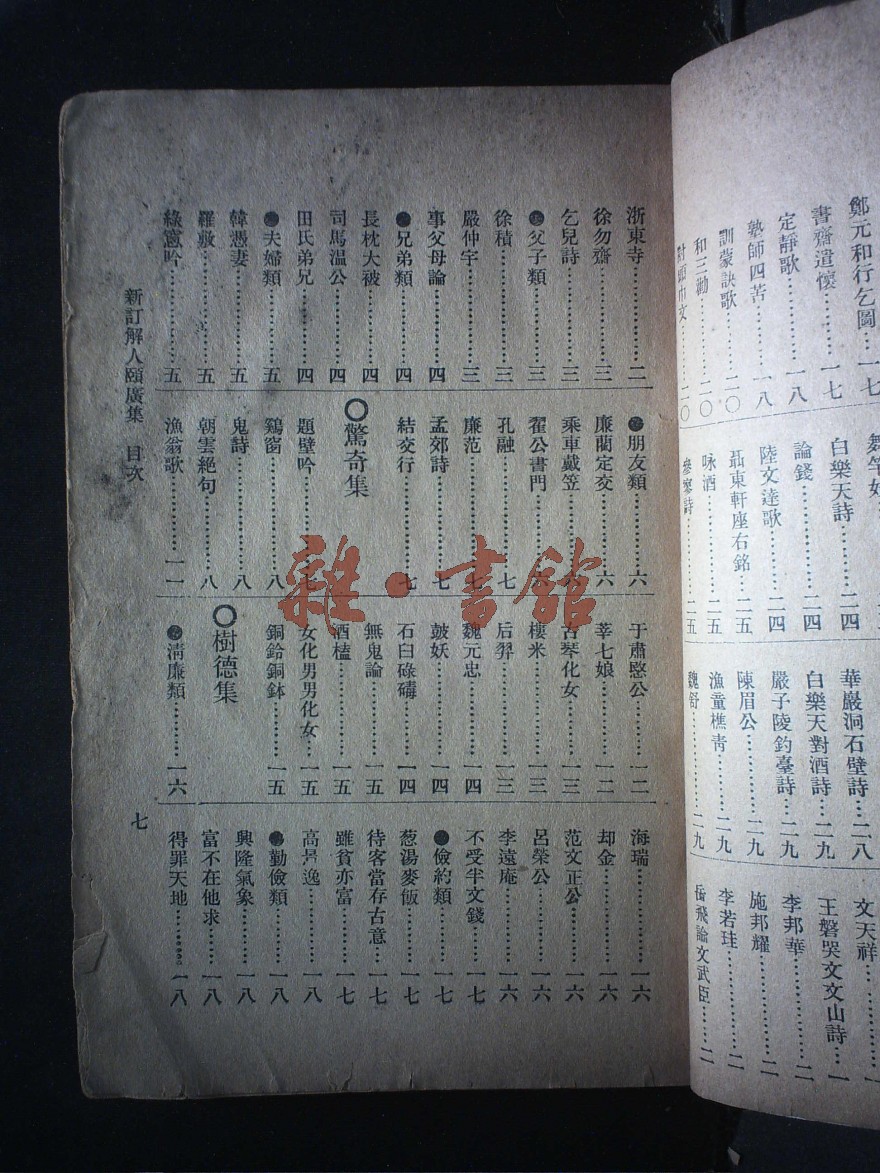 鄭元和行乞圖⋯⋯一七
書齋遣懷⋯⋯一七
定靜歌⋯⋯一八
塾師四苦⋯⋯一八
訓蒙訣歌⋯⋯二〇
和三勸⋯⋯二〇
二〇
白樂天詩⋯⋯二四
論錢⋯⋯二四
陸文達歌⋯⋯二四
聶東軒座右銘⋯⋯二五
咏酒⋯⋯二五
參寥詩⋯⋯二五
華嚴洞石壁詩⋯⋯二八
白樂天對酒詩⋯⋯二九
嚴子陵釣臺詩⋯⋯二九
陳眉公⋯⋯二九
漁童樵青⋯⋯二九
魏舒⋯⋯二九
文天祥⋯⋯一
王磐哭文文山詩⋯⋯一
李邦華⋯⋯二
施邦耀⋯⋯二
李若珪⋯⋯二
岳飛論文武臣⋯⋯二
浙東寺⋯⋯二
徐勿齋⋯⋯三
乞兒詩⋯⋯三
●父子類⋯⋯三
徐積⋯⋯三
嚴仲宇⋯⋯三
事父母論⋯⋯四
●兄弟類⋯⋯四
長枕大被⋯⋯四
司馬溫公⋯⋯四
田氏弟兄⋯⋯四
●夫婦類⋯⋯五
韓憑妻⋯⋯五
羅敷⋯⋯五
綠窻吟⋯⋯五
●朋友類⋯⋯六
廉藺定交⋯⋯六
乘車戴笠⋯⋯六
翟公書門⋯⋯六
孔融⋯⋯七
廉范⋯⋯七
孟郊詩⋯⋯七
結交行⋯⋯七
○驚奇集
題壁吟⋯⋯七
鷄窗⋯⋯八
鬼詩⋯⋯八
朝雲絕句⋯⋯八
漁翁歌⋯⋯一一
于肅愍公⋯⋯一二
莘七娘⋯⋯一二
古琴化女⋯⋯一三
棲米⋯⋯一三
后羿⋯⋯一三
魏元忠⋯⋯一四
鼓妖⋯⋯一四
石臼碌碡⋯⋯一四
無鬼論⋯⋯一五
酒榼⋯⋯一五
女化男男化女⋯⋯一五
銅鈴銅鉢⋯⋯一五
○樹德集
●清廉類⋯⋯一六
海瑞⋯⋯一六
却金⋯⋯一六
范文正公⋯⋯一六
呂榮公⋯⋯一六
李遠庵⋯⋯一六
不受半文錢⋯⋯一七
●儉約類⋯⋯一七
葱湯麥飯⋯⋯一七
待客當存古意⋯⋯一七
雖貧亦富⋯⋯一七
高景逸⋯⋯一八
●勤儉類⋯⋯一八
興隆氣象⋯⋯一八
富不在他求⋯⋯一八
得罪天地⋯⋯一八
新訂解人頤廣集 目次
七
雜·書館